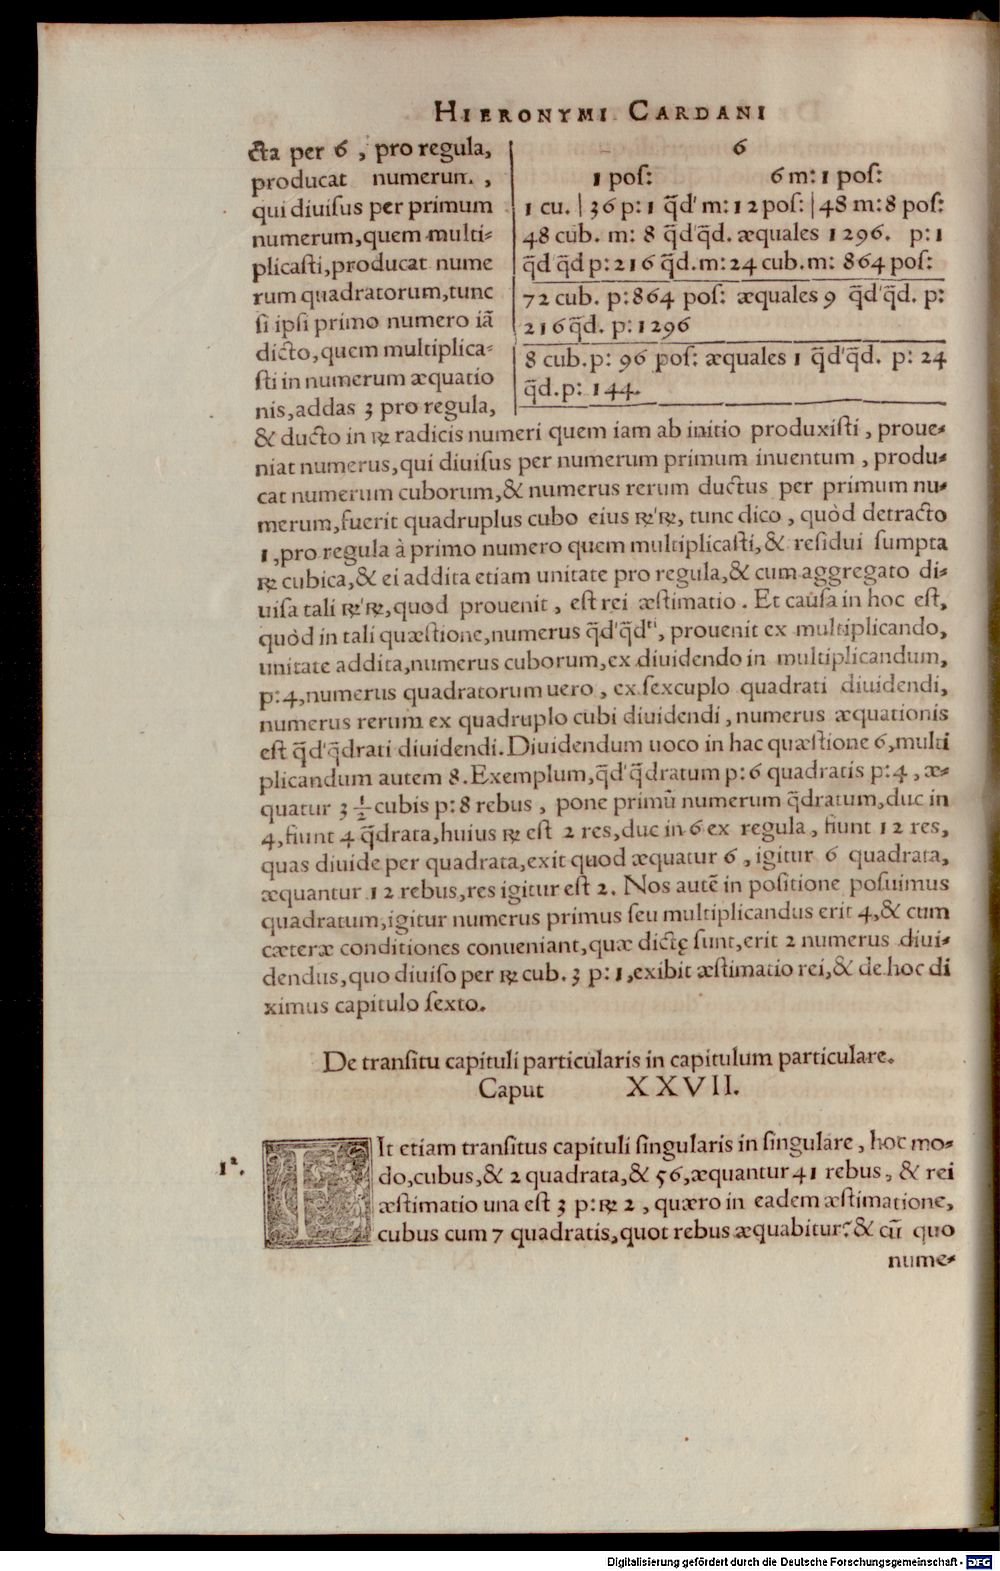 HIERONYMI CARDANI
cta per 6, pro regula,
producat numerum,
qui diuisus per primum
numerum, quem multi-
plicasti, producat nume
rum quadratorum, tunc
si ipsi primo numero iã
dicto, quem multiplica-
sti in numerum æquatio
nis, addas 3 pro regula,
6
1 pos: 6 m: 1 pos:
1 cu. | 36 p: 1 q̃d' m: 12 pos: | 48 m: 8 pos:
48 cub. m: 8 q̃d'q̃d. æquales 1296. p: 1
q̃d q̃d p: 216 q̃d. m: 24 cub. m: 864 pos:
72 cub. p: 864 pos: æquales 9 q̃d'q̃d. p:
216 q̃d. p: 1296
8 cub. p: 96 pos: æquales 1 q̃d'q̃d. p: 24
q̃d. p: 144.
& ducto in ℞ radicis numeri quem iam ab initio produxisti, proue-
niat numerus, qui diuisus per numerum primum inuentum, produ-
cat numerum cuborum, & numerus rerum ductus per primum nu-
merum, fuerit quadruplus cubo eius ℞'℞, tunc dico, quòd detracto
1, pro regula à primo numero quem multiplicasti, & residui sumpta
℞ cubica, & ei addita etiam unitate pro regula, & cum aggregato di-
uisa tali ℞'℞, quod prouenit, est rei æstimatio. Et causa in hoc est,
quòd in tali quæstione, numerus q̃d'q̃dti, prouenit ex multiplicando,
unitate addita, numerus cuborum, ex diuidendo in multiplicandum,
p: 4, numerus quadratorum uero, ex sexcuplo quadrati diuidendi,
numerus rerum ex quadruplo cubi diuidendi, numerus æquationis
est q̃d'q̃drati diuidendi. Diuidendum uoco in hac quæstione 6, multi
plicandum autem 8. Exemplum, q̃d'q̃dratum p: 6 quadratis p: 4, æ-
quatur 3 1/2 cubis p: 8 rebus, pone primũ numerum q̃dratum, duc in
4, fiunt 4 q̃drata, huius ℞ est 2 res, duc in 6 ex regula, fiunt 12 res,
quas diuide per quadrata, exit quod æquatur 6, igitur 6 quadrata,
æquantur 12 rebus, res igitur est 2. Nos autẽ in positione posuimus
quadratum, igitur numerus primus seu multiplicandus erit 4, & cum
cæteræ conditiones conueniant, quæ dictę sunt, erit 2 numerus diui-
dendus, quo diuiso per ℞ cub. 3 p: 1, exibit æstimatio rei, & de hoc di
ximus capitulo sexto.
De transitu capituli particularis in capitulum particulare.
Caput XXVII.
1ª. FIt etiam transitus capituli singularis in singulare, hoc mo-
do, cubus, & 2 quadrata, & 56, æquantur 41 rebus, & rei
æstimatio una est 3 p: ℞ 2, quæro in eadem æstimatione,
cubus cum 7 quadratis, quot rebus æquabitur? & cũ quo
nume-
Digitalisierung gefördert durch die Deutsche Forschungsgemeinschaft - DFG